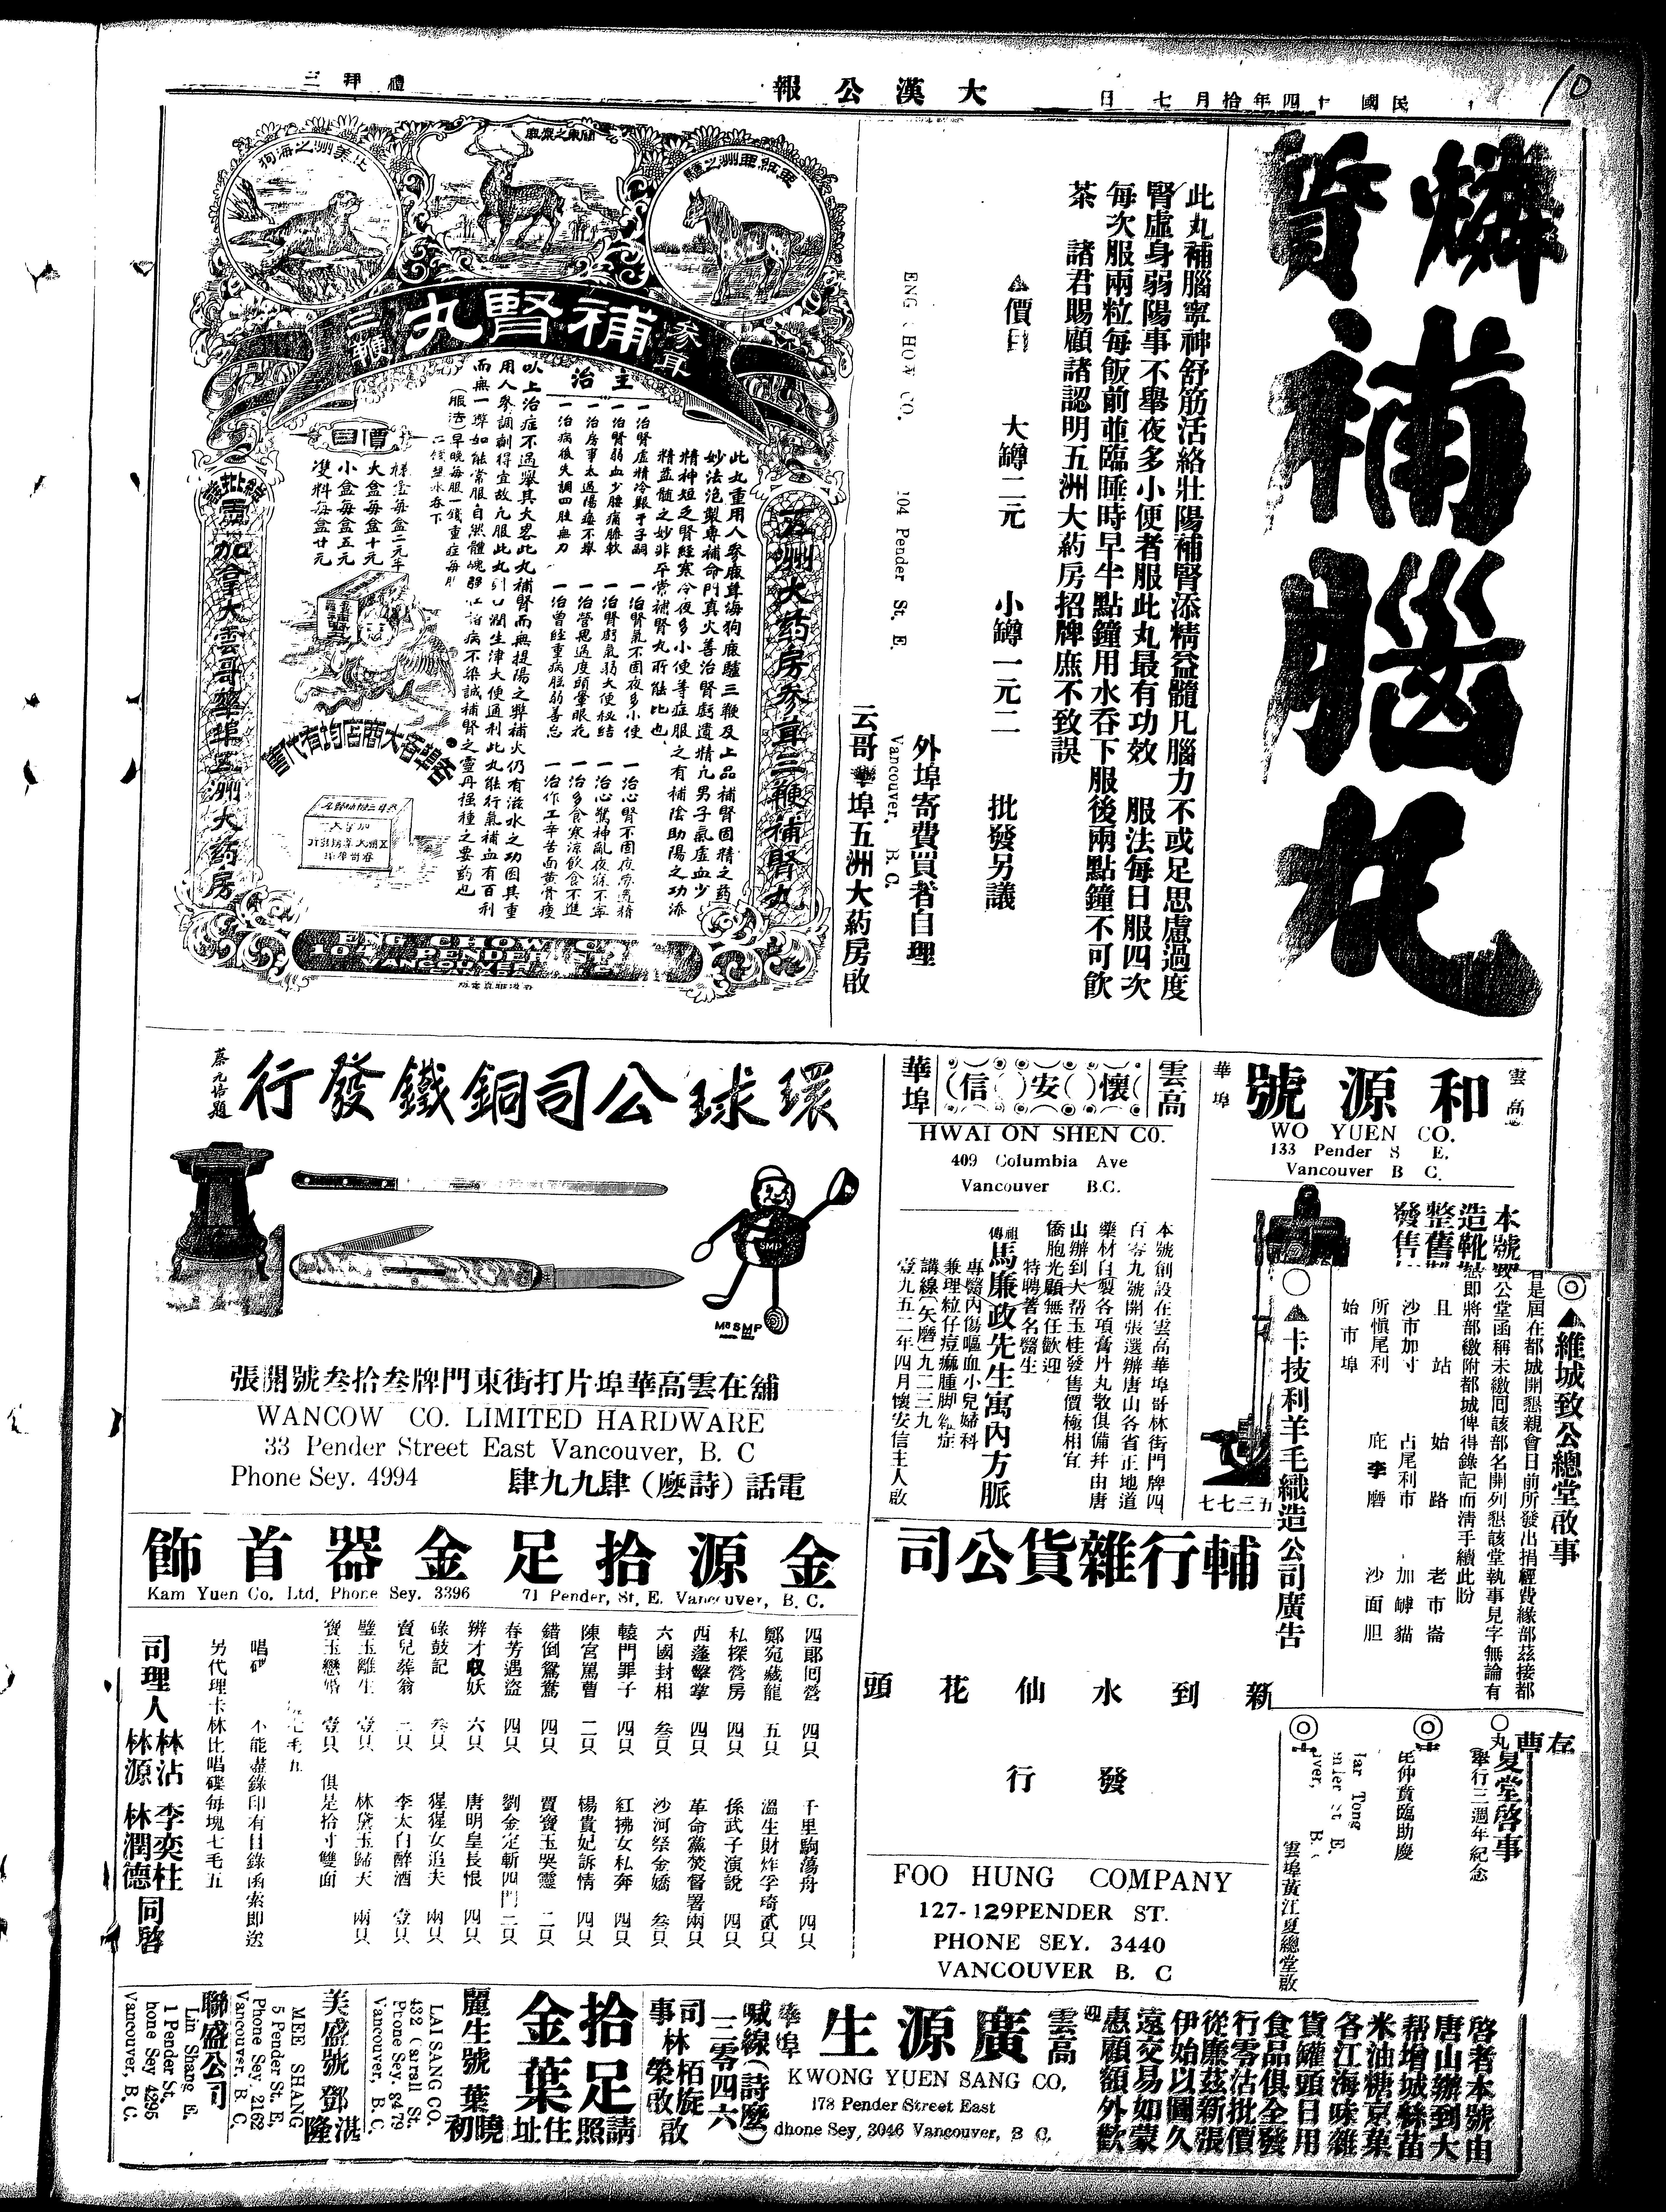 民國十四年拾月七日
大漢公報
禮拜三
燐質補腦丸
此丸補腦寧神舒筋活絡壯陽補腎添精益髓凡腦力不或足思慮過度
腎虛身弱陽事不舉夜多小便者服此丸最有功效 服法每日服四次
每次服兩粒每飯前並臨睡時早半點鐘用水吞下服後兩點鐘不可飲
茶 諸君賜顧諸認明五洲大葯房招牌庶不致誤
▲價目 大罇二元 小罇一元二 批發另議
外埠寄費買者自理
ENG CHOW CO. 104 Pender St. E. Vancouver. B.C.
云哥華埠五洲大葯房啟
北美洲之海狗
關東之鹿
參茸三鞭補腎丸
主治
此丸重用人參鹿茸海狗鹿驢三鞭及上品補腎固精之葯
妙法泡製專補命門真火善治腎虧遺精凢男子氣虛血少
精神短乏腎經寒冷夜多小便等症服之有補陰助陽之功添
精益髓之妙非平常補腎丸所能比也
一治腎虛精冷艱于子嗣 一治腎氣不固夜多小便 一治心腎不固夜夢遺精
一治腎弱血少腰痛膝軟 一治腎虧氣弱大便秘結 一治心驚神亂夜寐不寧
一治房事太過陽痿不舉 一治營思過度頭暈眼花 一治多食寒涼飲食不進
一治病後失調四肢無力 一治曾經重病體弱善忘 一治作工辛苦面黄骨瘦
以上治症不過舉其大畧此丸補腎而無提陽之弊補火仍有滋水之功因其重
用人參調劑得宜故凡服此丸到口潤生津大便通利此丸能行氣補血有百利
而無一弊如能常服自然體魄強壯諸病不染誠補腎之靈丹強種之要葯也
(服法)早晚每服一錢重症每服
二錢塩水吞下
價目
樣盒每盒二元半
大盒每盒十元
小盒每盒五元
雙料每盒廿元
各埠各大商店均有代售
五洲大葯房參茸三鞭補腎丸
加拿大雲哥華埠五洲大葯房
ENG CHOW CO.
104 PENDER ST. E.
VANCOUVER
雲高華埠
和源號
WO YUEN CO.
133 Pender S E.
Vancouver B C.
本號
造靴
整舊
發售
雲高華埠
懷安信
HWAI ON SHEN CO.
409 Columbia Ave
Vancouver B.C.
本號創設在雲高華埠哥林街門牌四
百零九號開張選辦唐山各省正地道
藥材自製各項膏丹丸散俱備并由唐
山辦到大帮玉桂發售價極相宜
僑胞光顧無任歡迎
特聘著名醫生
祖傳馬廉政先生寓內方脈
專醫內傷嘔血小兒婦科
兼理粒仔痘麻腫脚雜症
講線(矢磨)九二三九
壹九五二年四月懷安信主人啟
環球公司銅鐵發行
蔡元培題
SMP
舖在雲高華埠片打街東門牌叁拾叁號開張
WANCOW CO. LIMITED HARDWARE
33 Pender Street East Vancouver, B. C
Phone Sey. 4994
電話(詩麽)肆九九肆
◎▲維城致公總堂啟事
是屆在都城開懇親會日前所發出捐經費緣部茲接都
致公堂函稱未繳囘該部名開列懇該堂執事見字無論有
即將部繳附都城俾得錄記而清手續此盼
且站 始路 老市崙
沙市加寸 占尾利市 加罅貓
所愼尾利 庇李磨 沙面胆
始市埠
○▲卡技利羊毛織造公司廣告
五三七七
夏堂啓事
舉行三週年紀念
仲賁臨助慶
雲埠黃江夏總堂啟
輔行雜貨公司
新到水仙花頭
發行
FOO HUNG COMPANY
127-129PENDER ST.
PHONE SEY. 3440
VANCOUVER B. C
金源拾足金器首飾
Kam Yuen Co. Ltd. Phone Sey. 3396 71 Pender, St. E. Vancouver, B. C.
四郎囘營 四只 千里駒蕩舟 四只
鄭宛藏龍 五只 溫生財炸孚琦 貳只
私探營房 四只 孫武子演說 四只
西蓬擊掌 四只 革命黨焚督署 兩只
六國封相 叁只 沙河祭金嬌 叁只
轅門罪子 四只 紅拂女私奔 四只
陳宮罵曹 二只 楊貴妃訴情 四只
錯倒鴛鴦 四只 賈寶玉哭靈 二只
春芳遇盜 四只 劉金定斬四門 二只
辨才收妖 六只 唐明皇長恨 四只
碌鼓記 叁只 猩猩女追夫 兩只
賣兒葬翁 二只 李太白醉酒 壹只
壁玉離生 壹只 林黛玉歸天 兩只
寶玉戀婚 壹只 俱是拾寸雙面
七毛五
唱碟 不能盡錄印有目錄函索即送
另代理卡林比唱碟每塊七毛五
司理人 林沾 李奕柱 林源 林潤德 同啓
啓者本號由
唐山辦到大
帮增城絲苗
米油糖京菓
各江海味雜
貨罐頭日用
食品俱全發
行零沽批價
從廉茲新張
伊始以圖久
遠交易如蒙
惠顧額外歡
迎
雲高華埠
廣源生
KWONG YUEN SANG CO.
178 Pender Street East
Phone Sey, 3046 Vancouver, B C.
喊線(詩麽)
三零四六
司事林栢旋 榮啟
拾足金葉
請照住址
麗生號 葉曉初
LAI SANG CO.
432 Carrall St.
Phone Sey. 8479
Vancouver, B.C.
美盛號 鄧湛隆
MEE SHANG
5 Pender St. E,
Phone Sey. 2162
Vancouver, B. C.
聯盛公司
Lin Shang E.
1 Pender St.
hone Sey 4295
Vancouver, B, C.